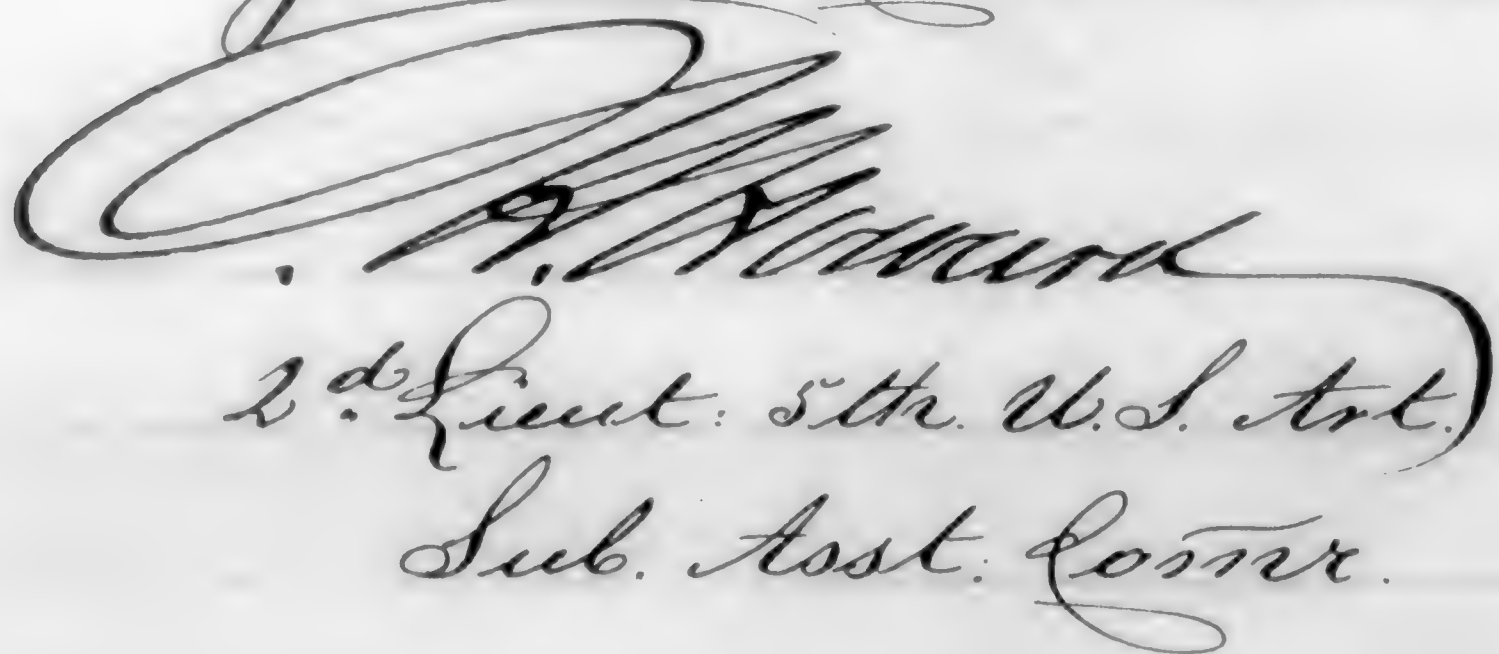 O. H. Howard
2.d Lieut: 5th. U.S. Art.
Sub. Asst. Com̅r.